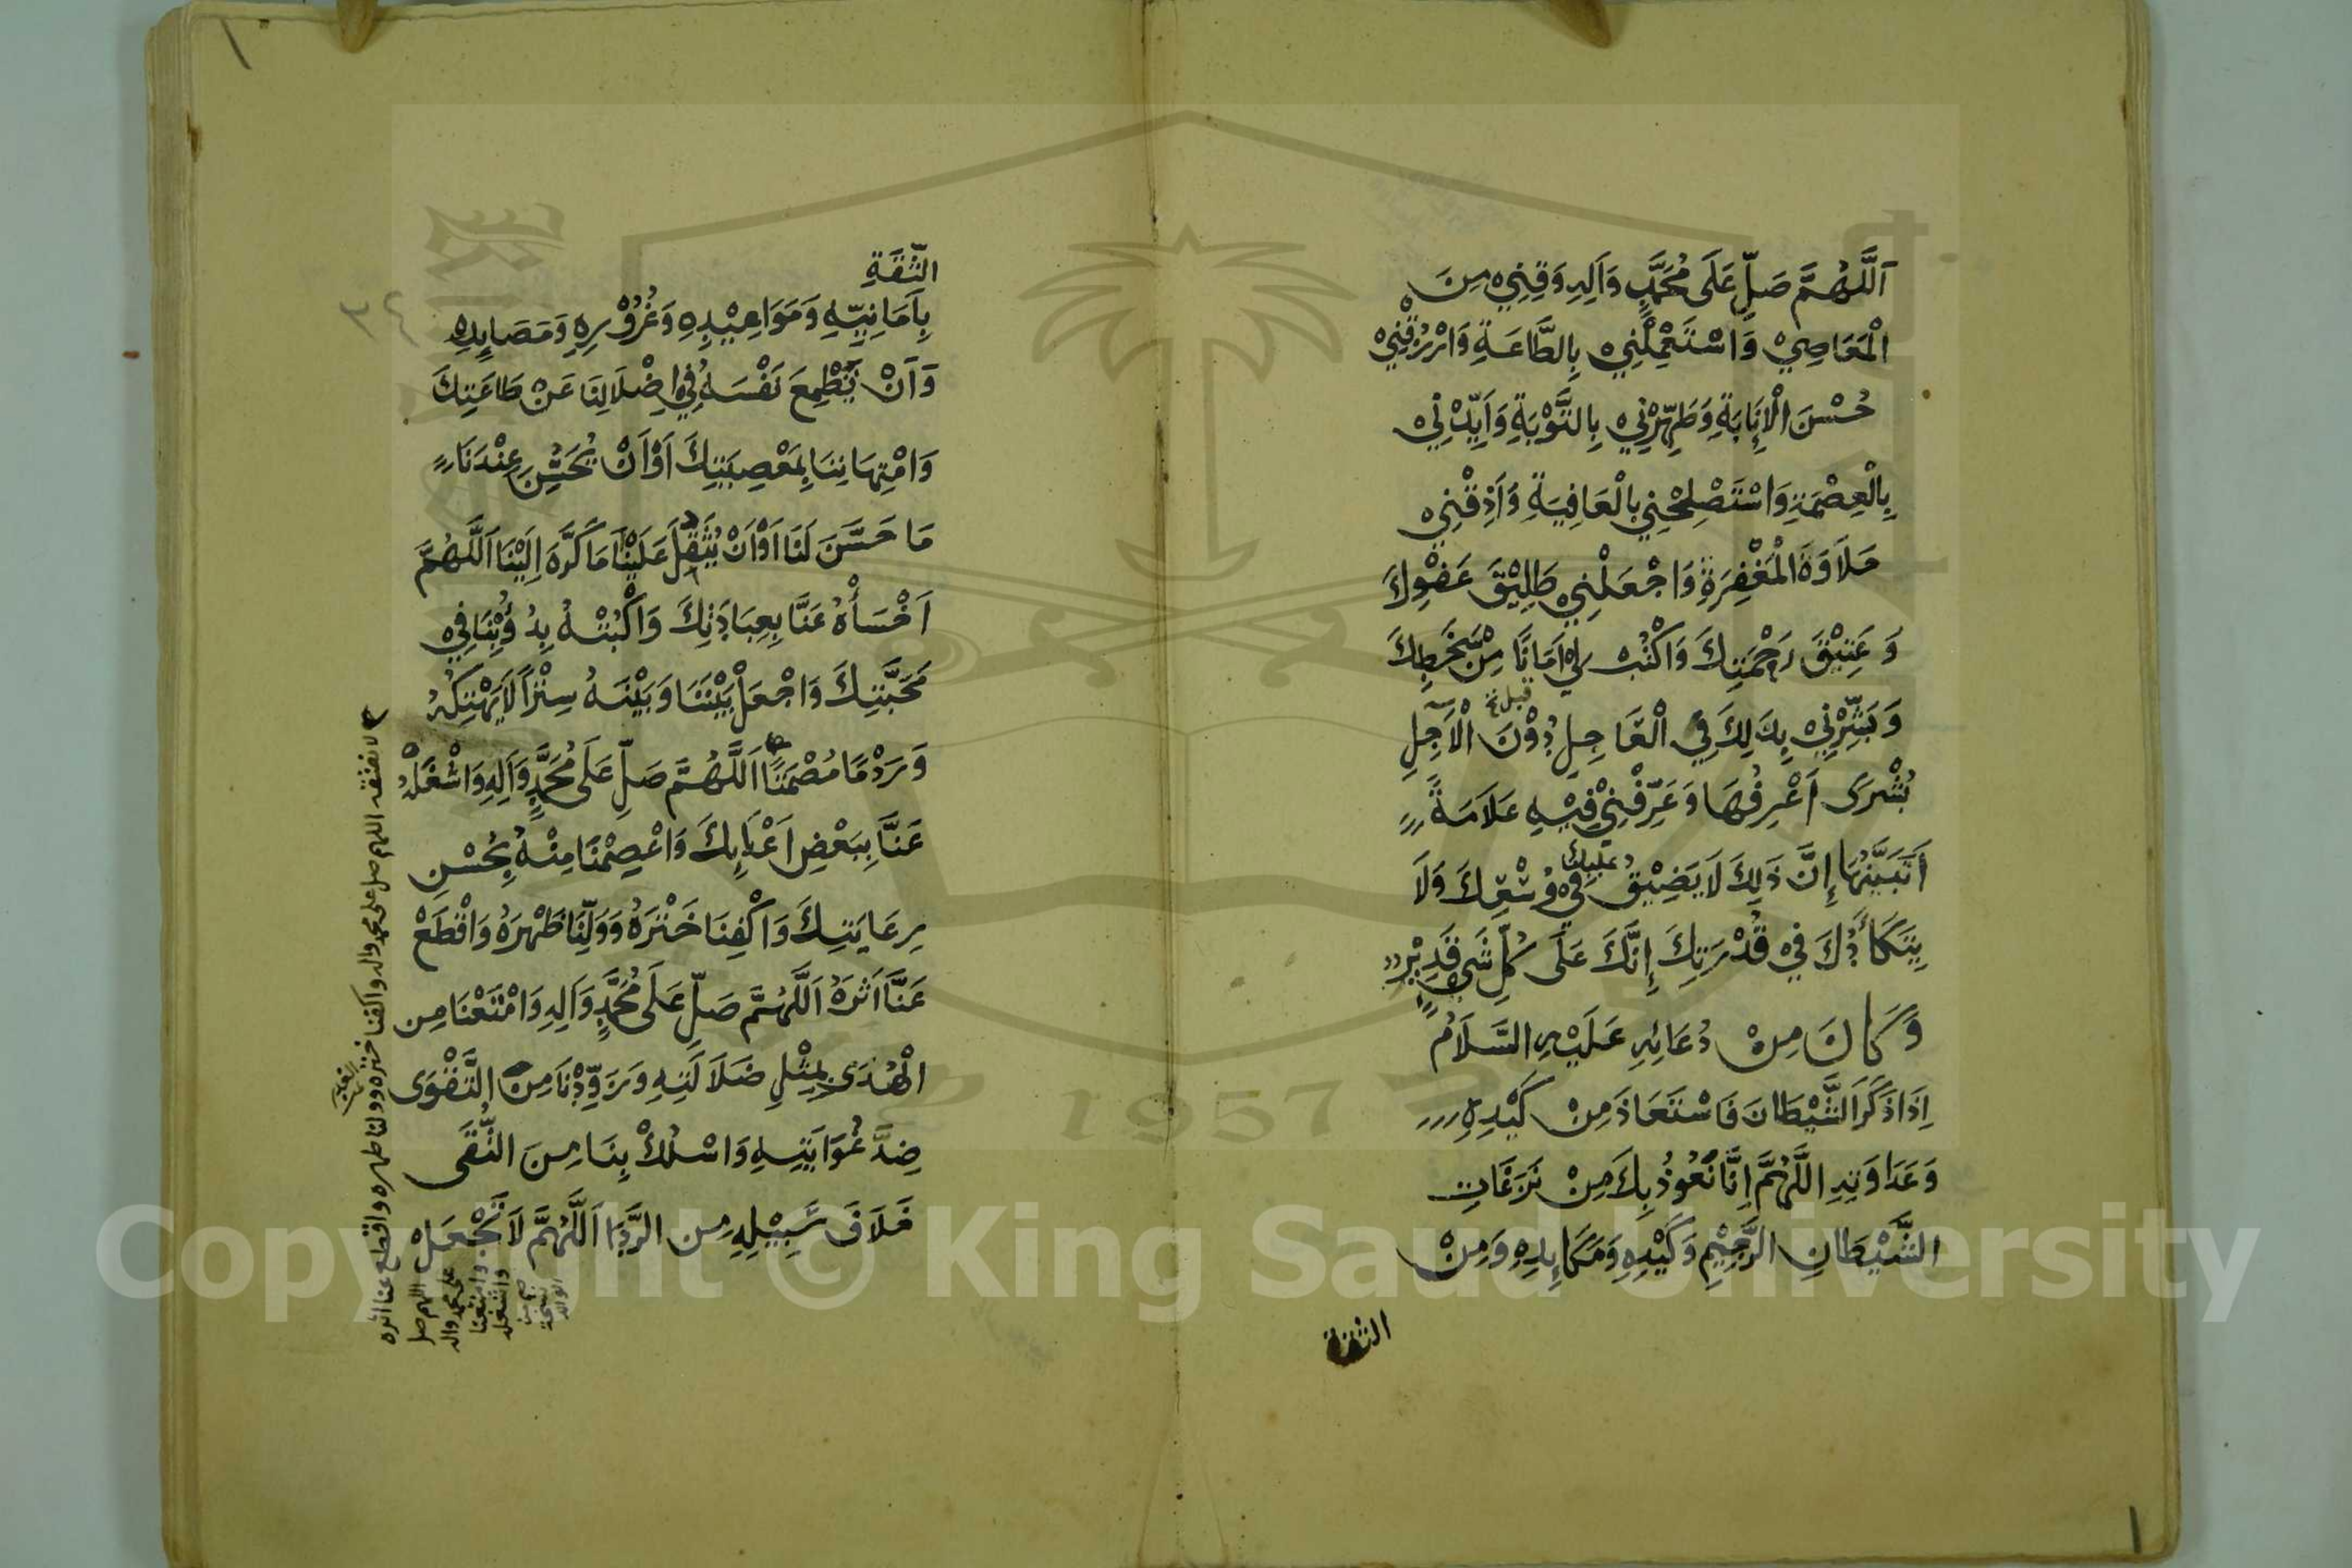 اَللَّهُمَّ صَلِّ عَلَى مُحَمَّدٍ وَاَلِهِ وَقِنِيْ مِنَ
الْمَعَاصِيْ وَاسْتَعْمِلْنِيْ بِالطَّاعَةِ وَارْزُقْنِيْ
حُسْنَ الْاِنَابَةِ وَطَهِّرْنِيْ بِالتَّوْبَةِ وَاَيِّدْنِيْ
بِالْعِصْمَةِ وَاسْتَصْلِحْنِي بِالْعَافِيَةِ وَاَذِقْنِيْ
حَلَاوَةَ الْمَغْفِرَةِ وَاجْعَلْنِيْ طَلِيْقَ عَفْوِكَ
وَعَتِيْقَ رَحْمَتِكَ وَاكْتُبْ لِيْ اَمَانًا مِنْ سَخَطِكَ
وَبَشِّرْنِيْ بِذَلِكَ فِي الْعَاجِلِ دُوْنَ الْاَجِلِ
قبل
بُشْرَى اَعْرِفُهَا وَعَرِّفْنِيْ فِيْهِ عَلَامَةً
اَتَبَيَّنُهَا اِنَّ ذَلِكَ لَا يَضِيْقُ عَلَيْكَ فِيْ وُسْعِكَ وَلَا
يَتَكَأَّدُكَ فِيْ قُدْرَتِكَ اِنَّكَ عَلَى كُلِّ شَيْءٍ قَدِيْرٌ
وَكَانَ مِنْ دُعَائِهِ عَلَيْهِ السَّلَامُ
اِذَا ذَكَرَ الشَّيْطَانَ فَاسْتَعَاذَ مِنْ كَيْدِهِ
وَعَدَاوَتِهِ اللَّهُمَّ اِنَّا نَعُوْذُ بِكَ مِنْ نَزَغَاتِ
الشَّيْطَانِ الرَّجِيْمِ وَكَيْدِهِ وَمَكَايِدِهِ وَمِنْ
الثقة
٣٤
الثِّقَةِ
بِاَمَانِيِّهِ وَمَوَاعِيْدِهِ وَغُرُوْرِهِ وَمَصَايِدِهِ
وَاَنْ يُطْمِعَ نَفْسَهُ فِي اِضْلَالِنَا عَنْ طَاعَتِكَ
وَامْتِهَانِنَا بِمَعْصِيَتِكَ اَوْ اَنْ يَحْسُنَ عِنْدَنَا
مَا حَسَّنَ لَنَا اَوْ اَنْ يَثْقُلَ عَلَيْنَا مَا كَرَّهَ اِلَيْنَا اَللَّهُمَّ
اَخْسَأْهُ عَنَّا بِعِبَادَتِكَ وَاكْبِتْهُ بِدُؤُبِنَا فِيْ
مَحَبَّتِكَ وَاجْعَلْ بَيْنَنَا وَبَيْنَهُ سِتْراً لَا يَهْتِكُهُ
وَرَدْمًا مُصْمَتًا اَللَّهُمَّ صَلِّ عَلَى مُحَمَّدٍ وَاَلِهِ وَاشْغَلْهُ
عَنَّا بِبَعْضِ اَعْدَائِكَ وَاعْصِمْنَا مِنْهُ بِحُسْنِ
رِعَايَتِكَ وَاكْفِنَا خَتْرَهُ وَوَلِّنَا ظَهْرَهُ وَاقْطَعْ
عَنَّا اَثَرَهُ اَللَّهُمَّ صَلِّ عَلَى مُحَمَّدٍ وَاَلِهِ وَامْتِعْنَا مِن
الْهُدَى بِمِثْلِ ضَلَالَتِهِ وَزَوِّدْنَا مِنَ التَّقْوَى
ضِدَّ غُوَايَتِهِ وَاسْلُكْ بِنَا مِنَ التُّقَى
خَلَافَ سَبِيْلِهِ مِن الرَّدَى اَللَّهُمَّ لَا تَجْعَلْ
لا يفتقه اللهم صل على محمد واله واكفنا ختره وولنا ظهره واقطع عنا اثره
اللهم صل
على محمد واله
وامتعنا
واشغله
Copyright © King Saud University
1957